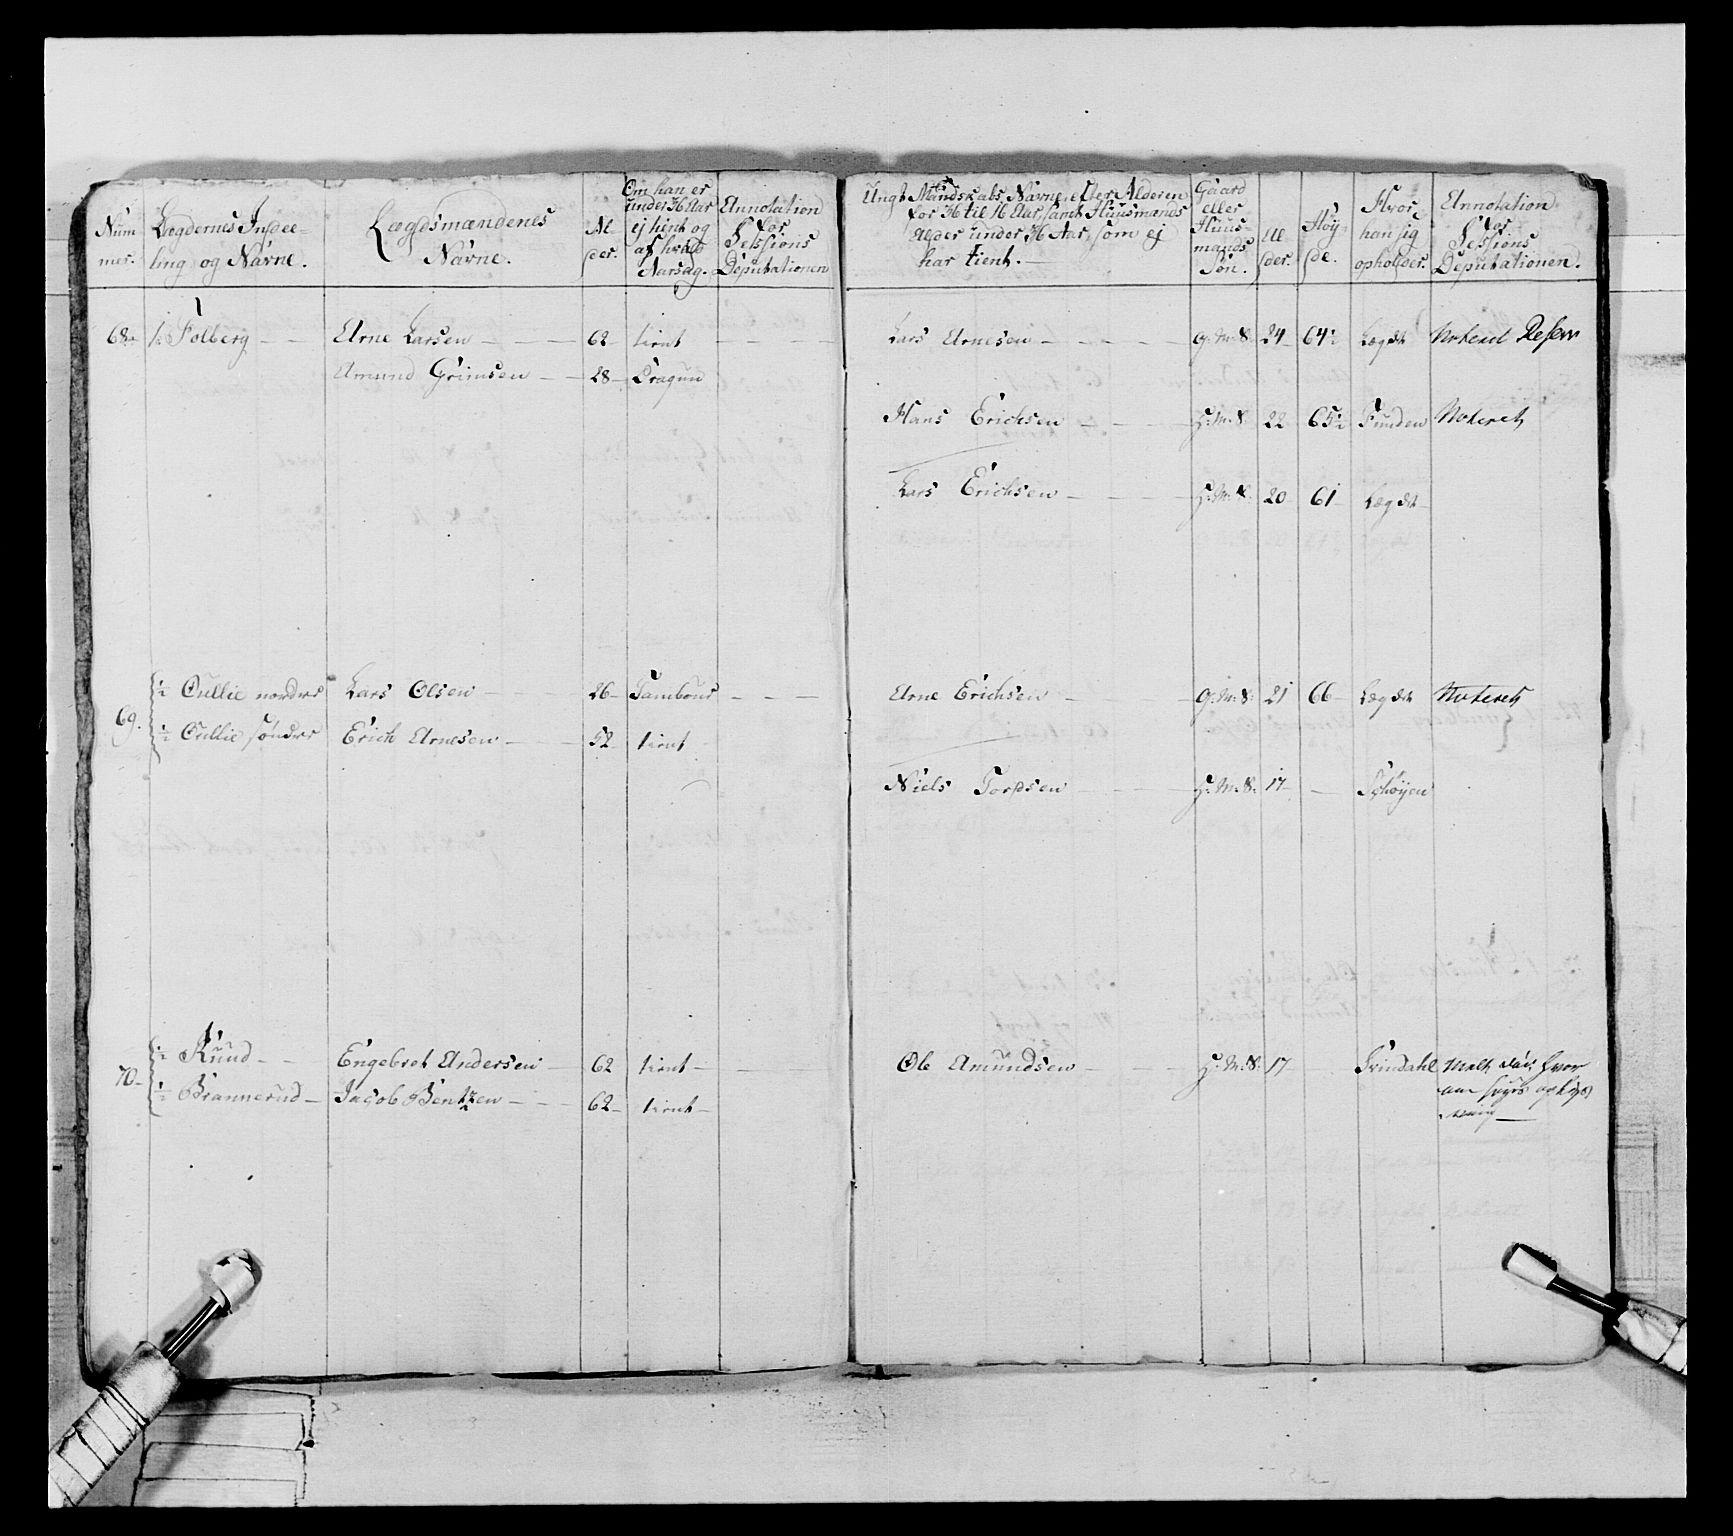 Num mer.
Lægdernes Indeeling og Navne.
Lægdsmændenes Navne.
Alder.
Om han er under 36 Aar ej tient og af hvad Aarsag.
Annotation for Sessions Deputationen
Ungt Mandskabs Navne, efter Alderen for 36 til 16 Aar, samt Huusmænds Alder under 36 Aar, som ej har tient.
Gaard eller Huusmands Søn.
Alder.
Høyde.
Hvor han sig opholder.
Annotation for Sessions Deputationen.
68 1 Folberg Arne Larsen 62 tient
Lars Arnesen G:M:S: 24 64 1/2 Lægdet Noteret Reserv
Amund Grimsen 28 Dragun
Hans Erichsen H:M:S: 22 65 1/2 Funden Noteret
Lars Erichsen H:M:S: 20 61 Lægdet
69. 1/2 Oullie nordre Lars Olsen 26 Tambour
Arne Erichsen G:M:S: 21 66 Lægdet Noteret
1/2 Oullie søndre Erich Arnesen 52 tient
Niels Torpsen H:M:S: 17 Schøyen
70 1/2 Ruud Engebret Andersen 62 tient
Ole Amundsen H:M:S: 17 Grindahl
1/2 Brannerud Jacob Bentzen 62 tient
om søges oplys
ning